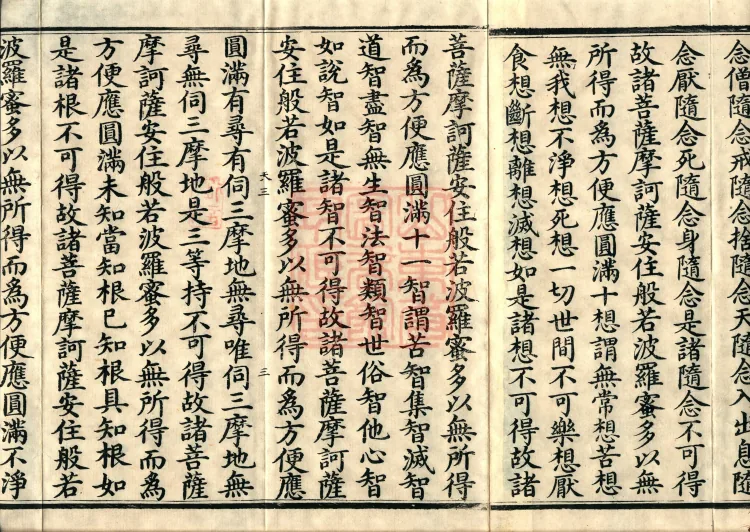 念僧隨念戒隨念捨隨念天隨念入出息隨
念厭隨念死隨念身隨念是諸隨念不可得
故諸菩薩摩訶薩安住般若波羅蜜多以無
所得而爲方便應圓滿十想謂無常想苦想
無我想不淨想死想一切世間不可樂想厭
食想斷想離想滅想如是諸想不可得故諸
菩薩摩訶薩安住般若波羅蜜多以無所得
而爲方便應圓滿十一智謂苦智集智滅智
道智盡智無生智法智類智世俗智他心智
如說智如是諸智不可得故諸菩薩摩訶薩
安住般若波羅蜜多以無所得而爲方便應
天三 三
圓滿有尋有伺三摩地無尋唯伺三摩地無
尋無伺三摩地是三等持不可得故諸菩薩
摩訶薩安住般若波羅蜜多以無所得而爲
方便應圓滿未知當知根已知根具知根如
是諸根不可得故諸菩薩摩訶薩安住般若
波羅蜜多以無所得而爲方便應圓滿不淨